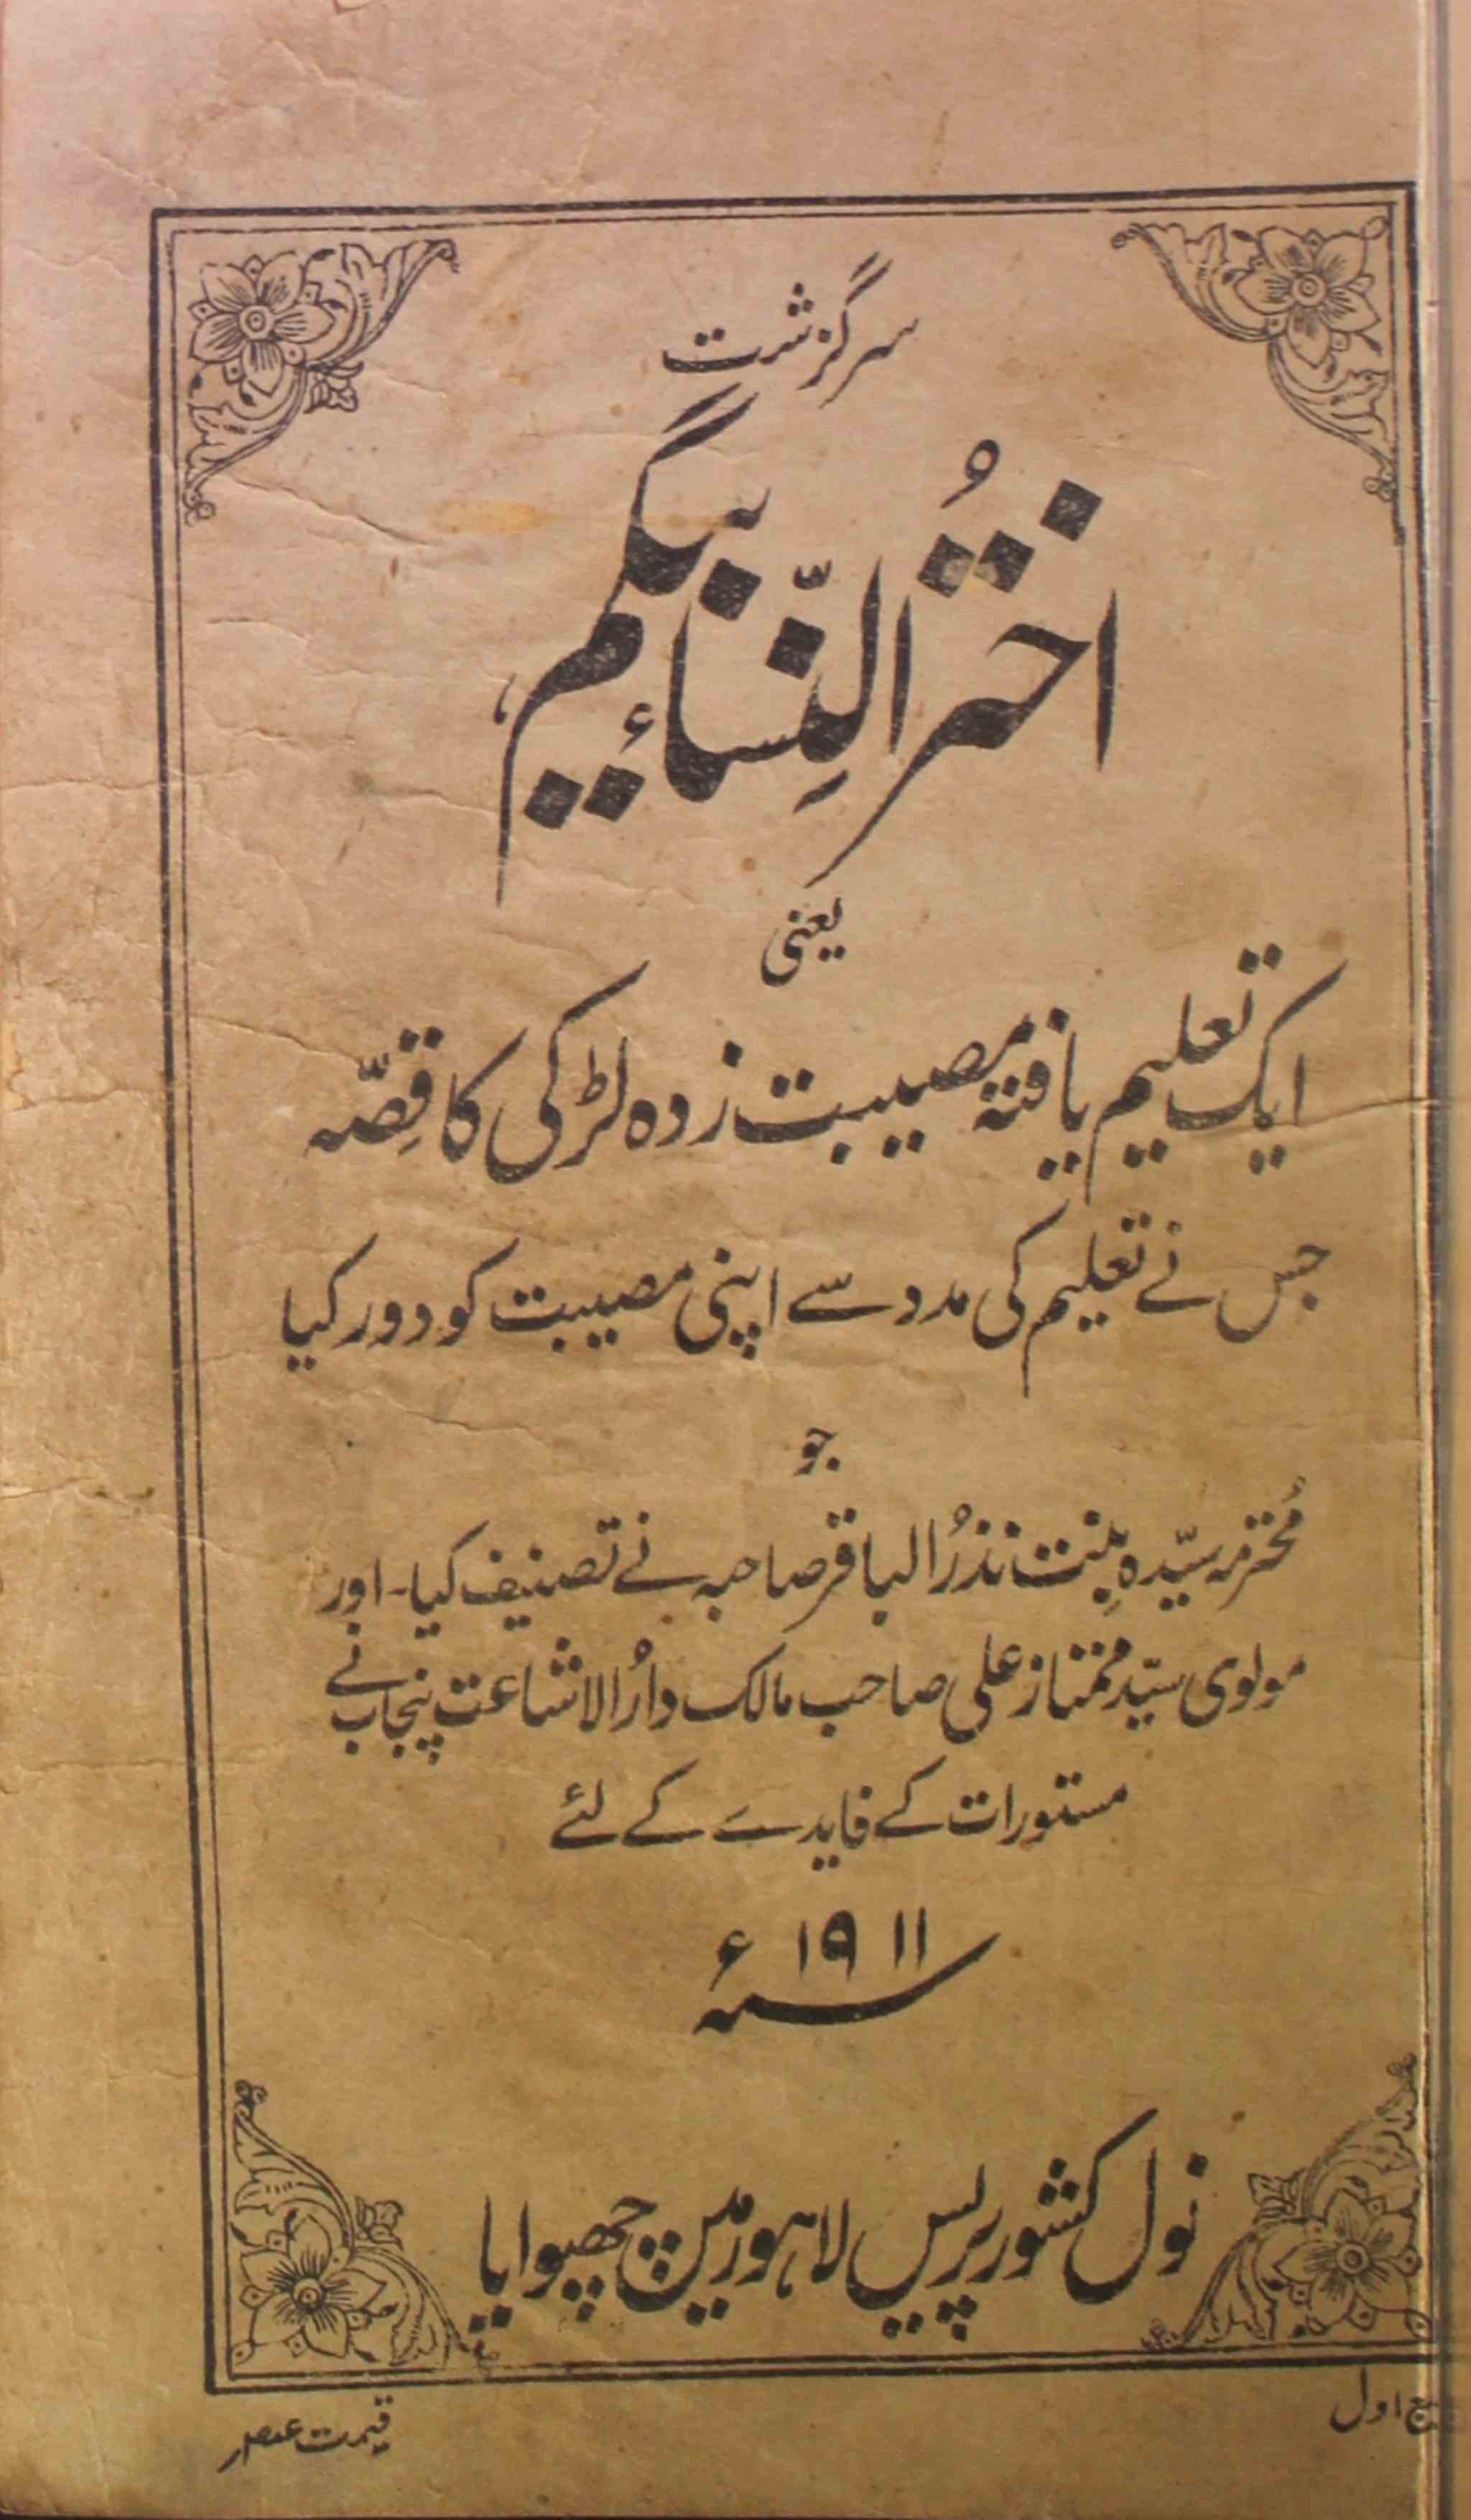 سرگزشت
اخترُ النِّساء بیگم
یعنی
ایک تعلیم یافتہ مصیبت زدہ لڑکی کا قِصّہ
جس نے تعلیم کی مدد سے اپنی مصیبت کو دور کیا
جو
مُحترمہ سیّدہ بِنت نذرُ الباقر صاحبہ نے تصنیف کیا۔ اور
مولوی سیّد ممتاز علی صاحب مالک دارُ الاشاعت پنجاب نے
مستورات کے فایدے کے لئے
سنہ ۱۹۱۱ء
نول کشور پریس لاہور میں چھپوایا
اول
قیمت